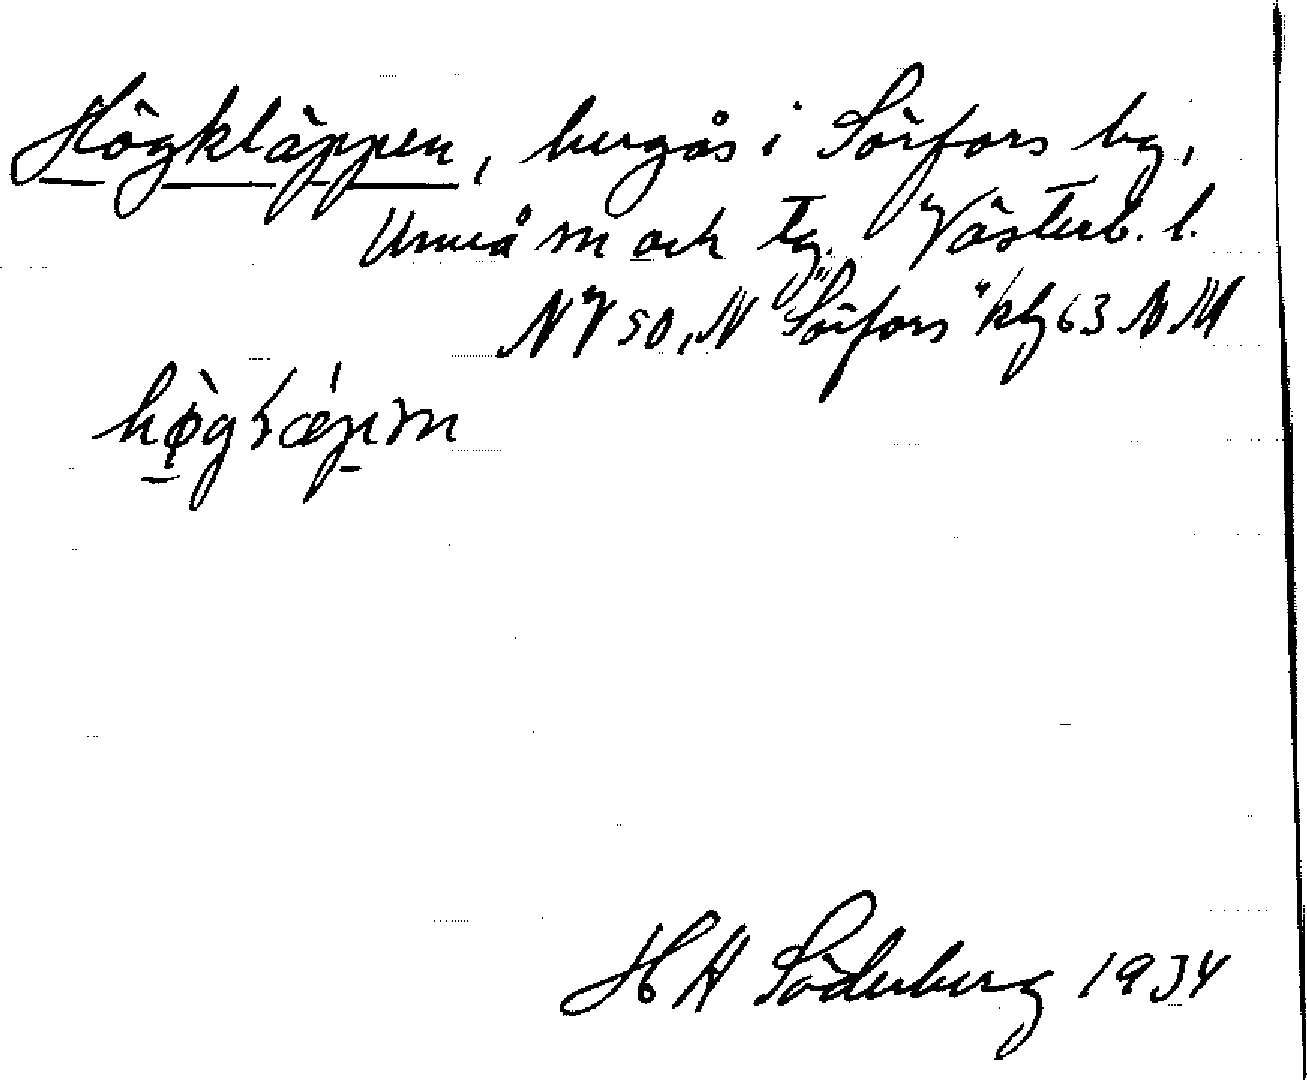 Högkläppen, bergås i Sörfors by,
Umeå sn och tg. Västerb. l.
NV 50, N "Sörfors" kbl 63 NM
H H Söderberg 1934